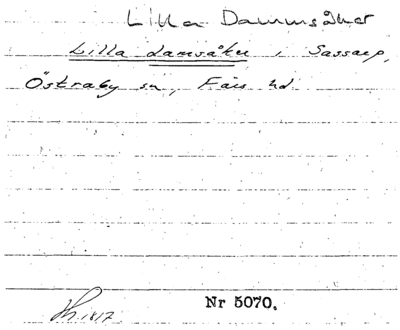 Lilla Dammsåker
Lilla damsåker i Sassarp,
Östraby sn, Färs hd.
Nr 5070.